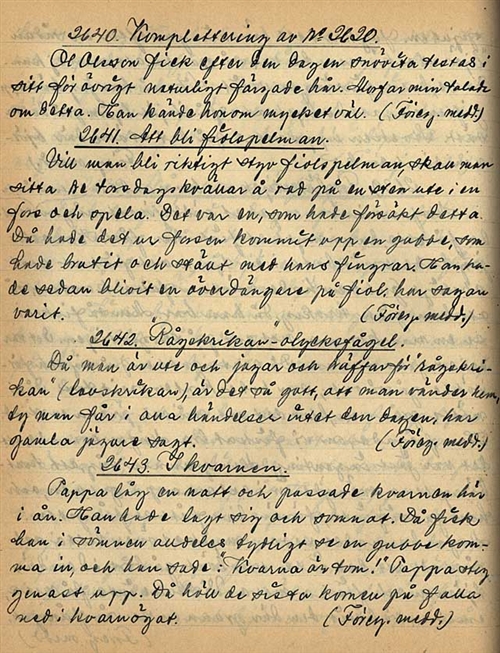 2640. Komplettering av № 2620.
Ol Olsson fick efter den dagen snövita testas i
sitt för övrigt naturligt färgade hår. Morfar min talade
om detta. Han kände honom mycket väl. (Föreg. medd.)
2641. Att bli fiolspelman.
Vill man bli riktigt styv fiolspelman, skall man
sitta tre torsdagskvällar å rad på en sten ute i en
fors och spela. Det var en, som hade försökt detta.
Då hade det ur forsen kommit upp en gubbe, som
hade brutit och tänt med hans fingrar. Han ha-
de sedan blivit en överdängare på fiol, har sagan
varit. (Föreg. medd.)
2642. "Rågskrikan" olycksfågel.
Då man är ute och jagar och träffar för "rågskri-
kan" (lavskrikan), är det så gott, att man vänder hem,
ty man får i alla händelser intet den dagen, har
gamla jägare sagt. (Föreg. medd.)
2643. I kvarnen.
Pappa låg en natt och passade kvarnen här
i ån. Han hade lagt sig och somnat. Då fick
han i sömnen alldeles tydligt se en gubbe kom-
ma in, och han sade: "Kvarna är tom!" Pappa steg
genast upp. Då höll de sista kornen på falla
ned i kvarnögat. (Föreg. medd.)